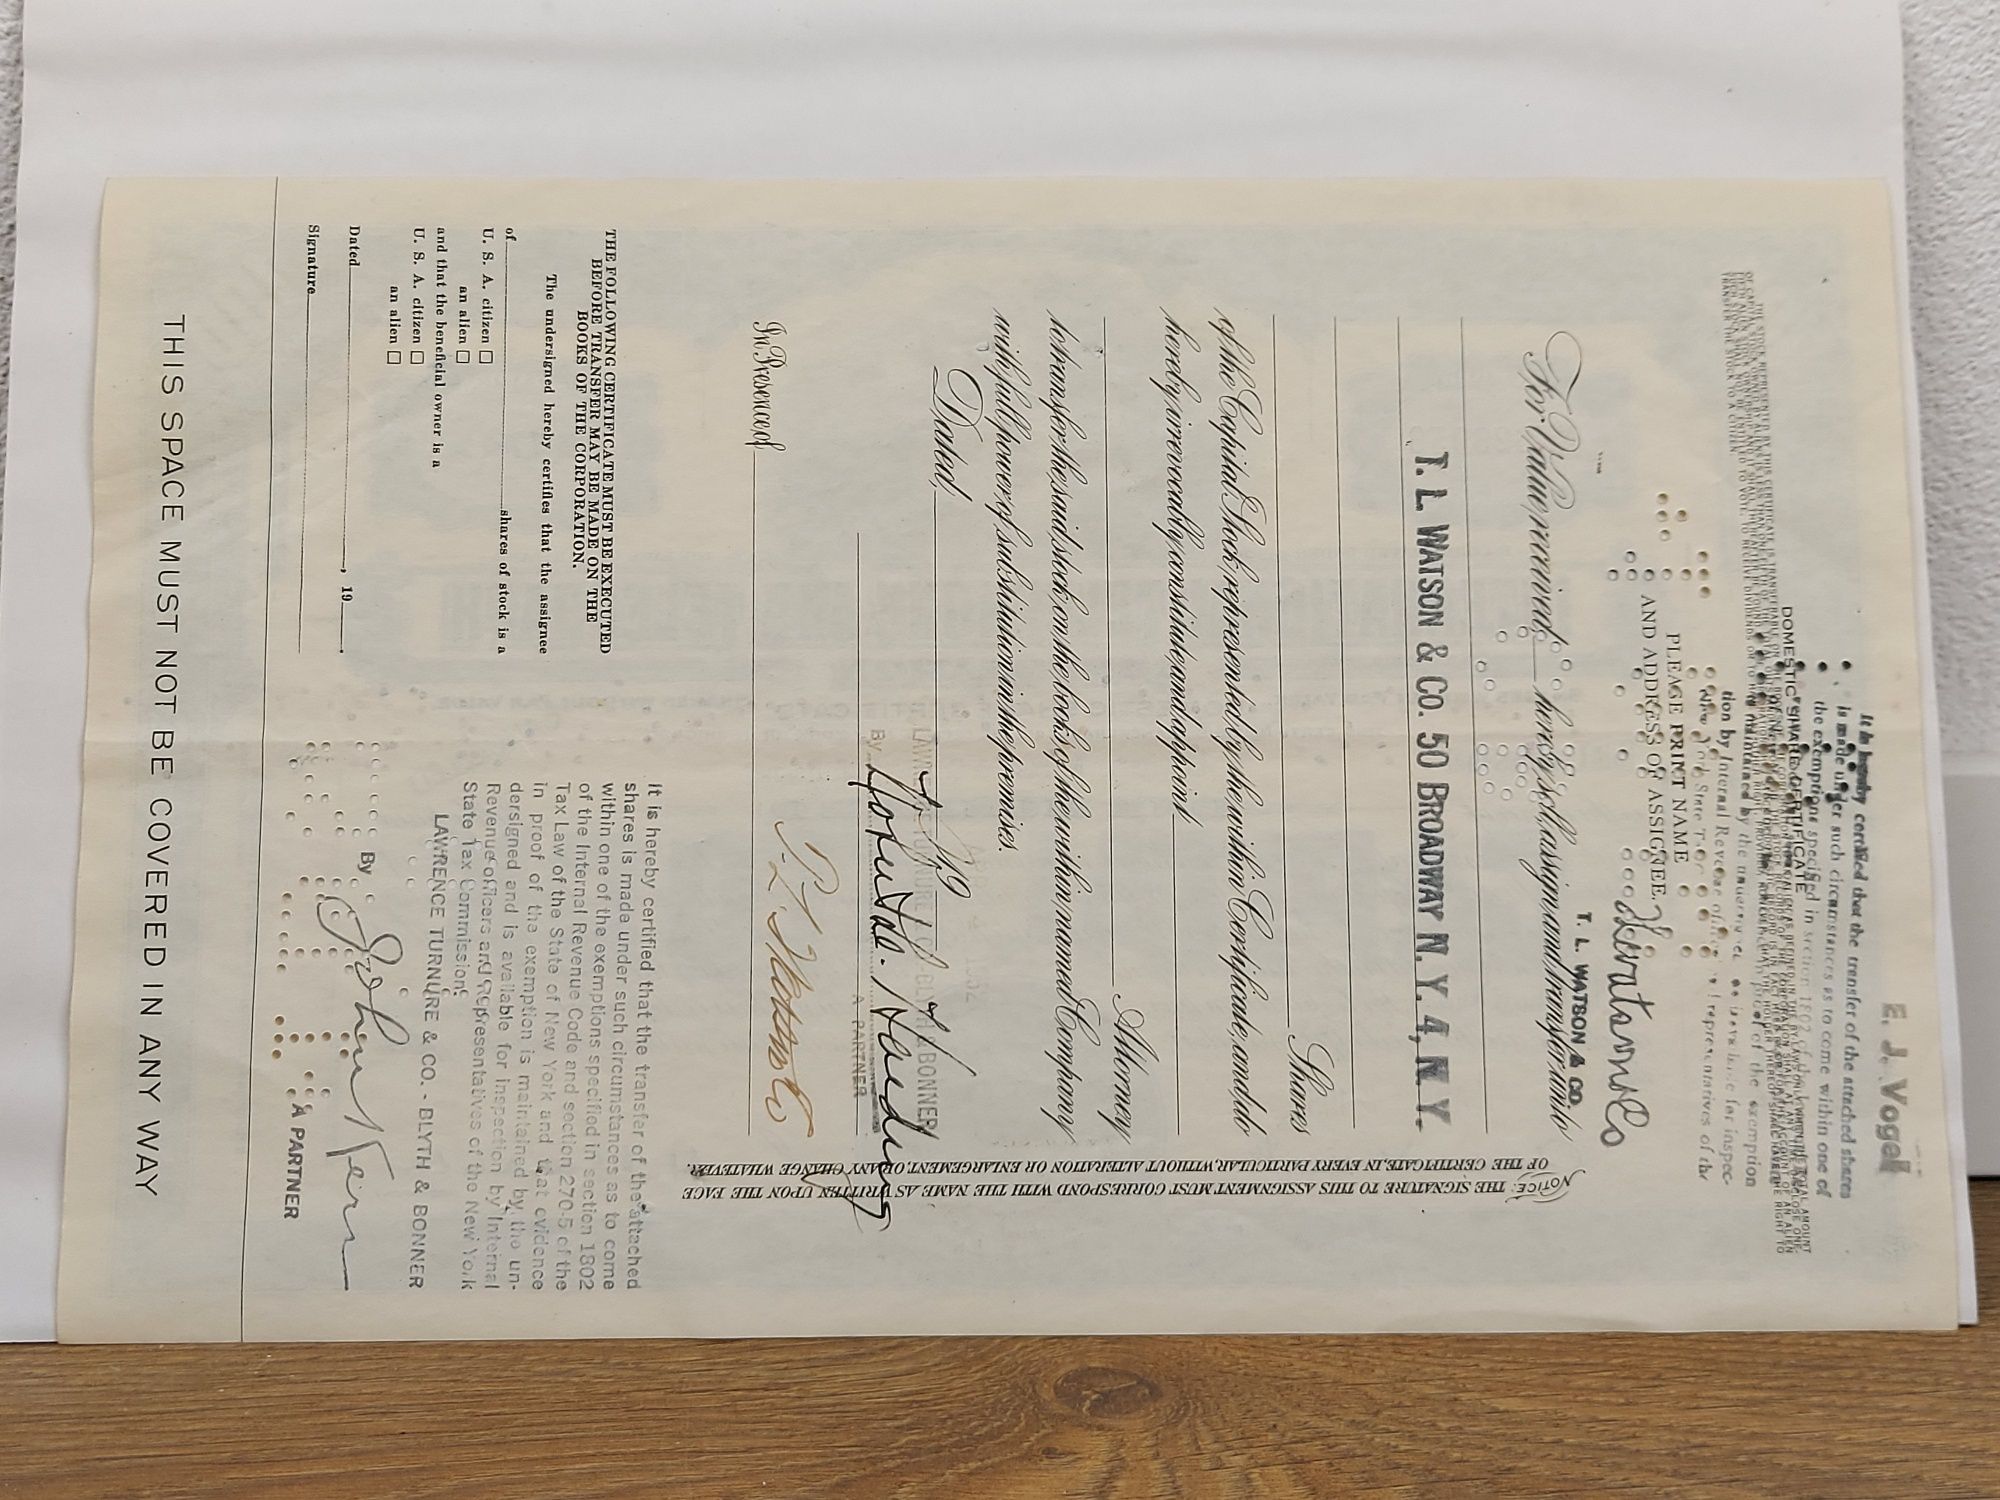 E. J. Vogel
It is hereby certified that the transfer of the attached shares
is made under such circumstances as to come within one of
the exemptions specified in section 1802 of the
DOMESTIC SHARE CERTIFICATE
tion by Internal Revenue officers representatives of the
New York State
PLEASE PRINT NAME
AND ADDRESS OF ASSIGNEE.
T. L. WATSON & CO.
For Value received, hereby sell, assign and transfer unto
T. L. WATSON & CO. 50 BROADWAY N. Y. 4, N. Y.
Shares
of the Capital Stock represented by the within Certificate, and do
hereby irrevocably constitute and appoint
Attorney
to transfer the said stock on the books of the within named Company
with full power of substitution in the premises.
Dated, 19
LAWRENCE TURNURE & CO.-BLYTH & BONNER
By
A PARTNER
In Presence of
NOTICE: THE SIGNATURE TO THIS ASSIGNMENT MUST CORRESPOND WITH THE NAME AS WRITTEN UPON THE FACE
OF THE CERTIFICATE, IN EVERY PARTICULAR, WITHOUT ALTERATION OR ENLARGEMENT, OR ANY CHANGE WHATEVER.
THE FOLLOWING CERTIFICATE MUST BE EXECUTED
BEFORE TRANSFER MAY BE MADE ON THE
BOOKS OF THE CORPORATION.
The undersigned hereby certifies that the assignee
of shares of stock is a
U. S. A. citizen □
an alien □
and that the beneficial owner is a
U. S. A. citizen □
an alien □
Dated , 19
Signature
It is hereby certified that the transfer of the attached
shares is made under such circumstances as to come
within one of the exemptions specified in section 1802
of the Internal Revenue Code and section 270-5 of the
Tax Law of the State of New York and that evidence
in proof of the exemption is maintained by the un-
dersigned and is available for inspection by Internal
Revenue officers and Representatives of the New York
State Tax Commission.
LAWRENCE TURNURE & CO. - BLYTH & BONNER
By John Kern
A PARTNER
THIS SPACE MUST NOT BE COVERED IN ANY WAY